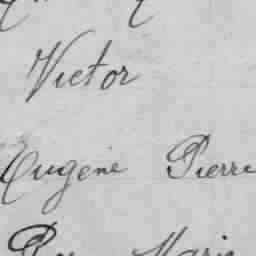 Victor
Eugène Pierre
Marie